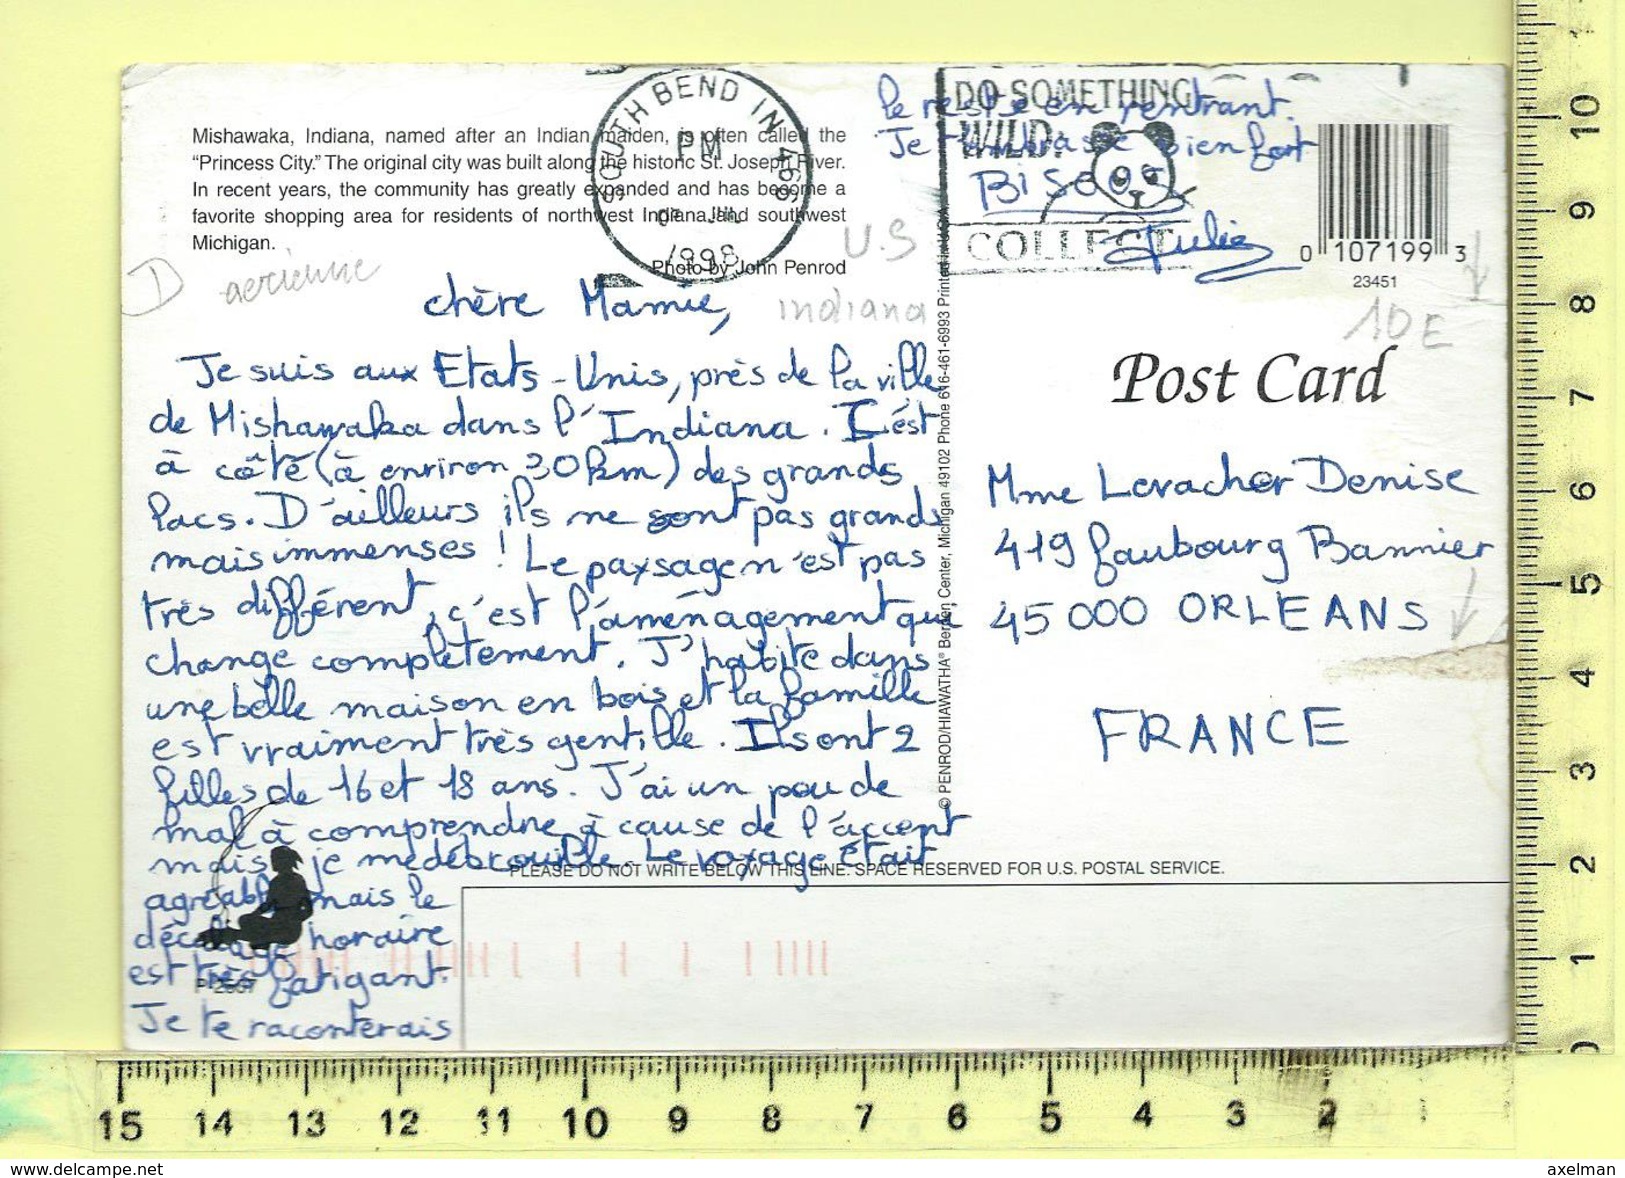 Mishawaka, Indiana, named after an Indian maiden, is often called the
“Princess City.” The original city was built along the historic St. Joseph River.
In recent years, the community has greatly expanded and has become a
favorite shopping area for residents of northwest Indiana and southwest
Michigan.
Photo by John Penrod
SOUTH BEND IN 466
PM
JUL
1998
DO SOMETHING
WILD:
COLLECT
le reste en rentrant.
Je t'embrasse bien fort
BISOUS
Julie
0 107199 3
23451
D aerienne
U.S
indiana
10E
chère Mamie,
Je suis aux Etats-Unis, près de la ville
de Mishawaka dans l'Indiana. C'est
à côté (à environ 30km) des grands
lacs. D'ailleurs ils ne sont pas grands
mais immenses ! Le paysage n'est pas
très différent, c'est l'aménagement qui
change complètement. J'habite dans
une belle maison en bois et la famille
est vraiment très gentille. Ils ont 2
filles de 16 et 18 ans. J'ai un peu de
mal à comprendre à cause de l'accent
mais je me débrouille. Le voyage était
agréable mais le
décalage horaire
est très fatigant.
Je te raconterais
© PENROD/HIAWATHA® Berrien Center, Michigan 49102 Phone 616-461-6993 Printed in U.S.A.
Post Card
Mme Levacher Denise
419 faubourg Bannier
45000 ORLEANS
FRANCE
PLEASE DO NOT WRITE BELOW THIS LINE. SPACE RESERVED FOR U.S. POSTAL SERVICE.
10
9
8
7
6
5
4
3
2
1
0
15 14 13 12 11 10 9 8 7 6 5 4 3 2 1
www.delcampe.net
axelman